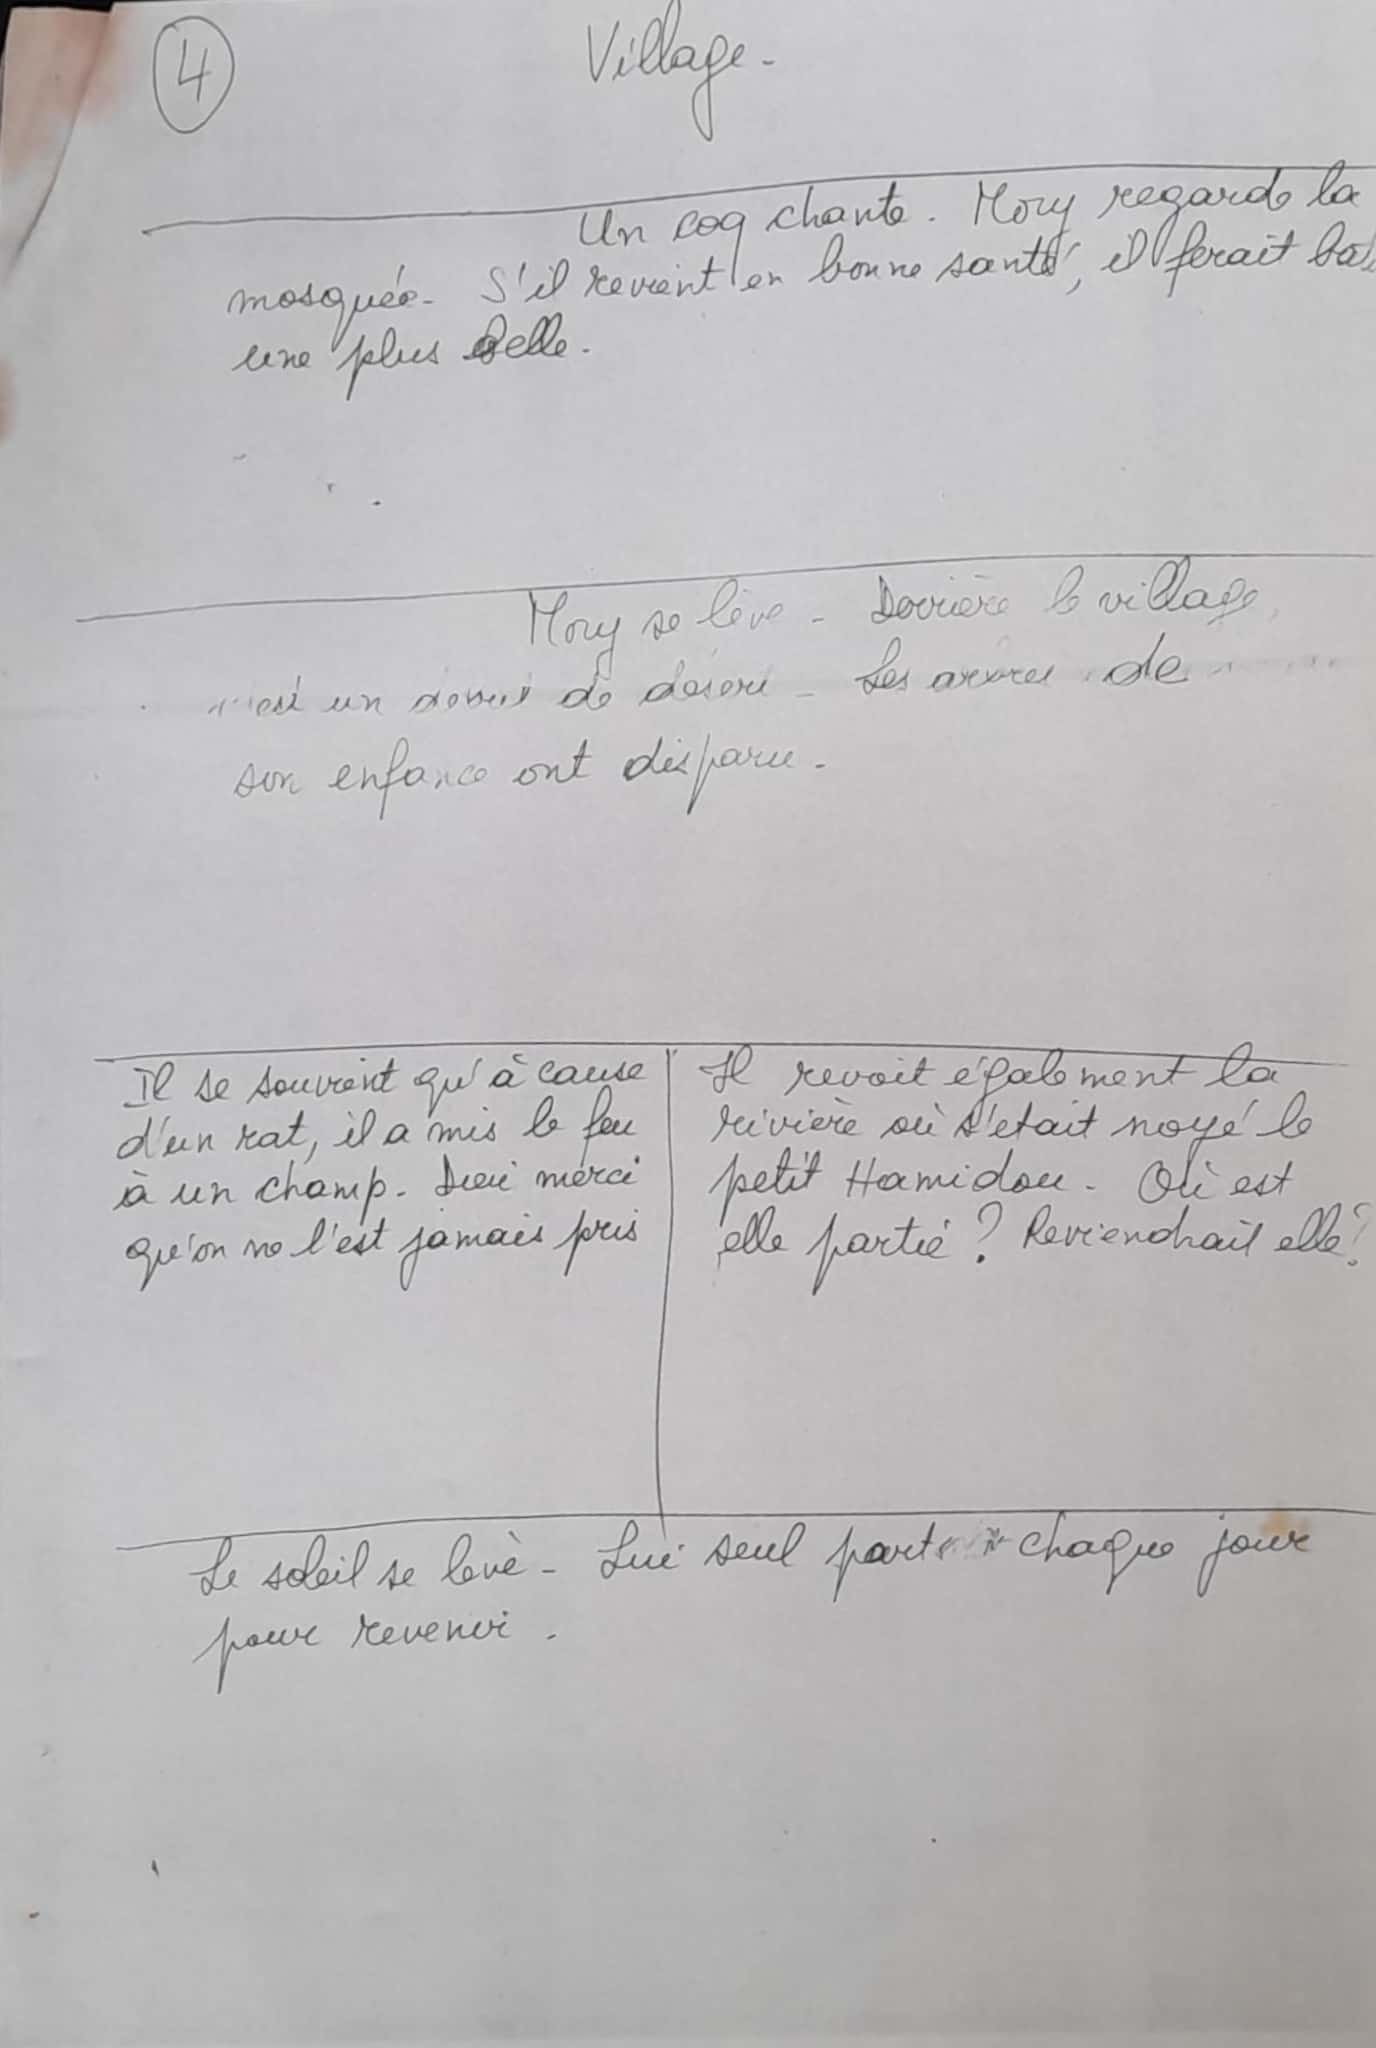 4
Village.
Un coq chante. Mory regarde la
mosquée. S'il revient en bonne santé, il ferait
une plus belle.
Mory se lève. Derrière le village,
c'est un début de désert. Les arbres de
son enfance ont disparu.
Il se souvient qu'à cause
d'un rat, il a mis le feu
à un champ. Dieu merci
qu'on ne l'est jamais pris
Il revoit également la
rivière où s'était noyé le
petit Hamidou. Où est
elle partie? Reviendrait elle?
Le soleil se lève. Lui seul part chaque jour
pour revenir.